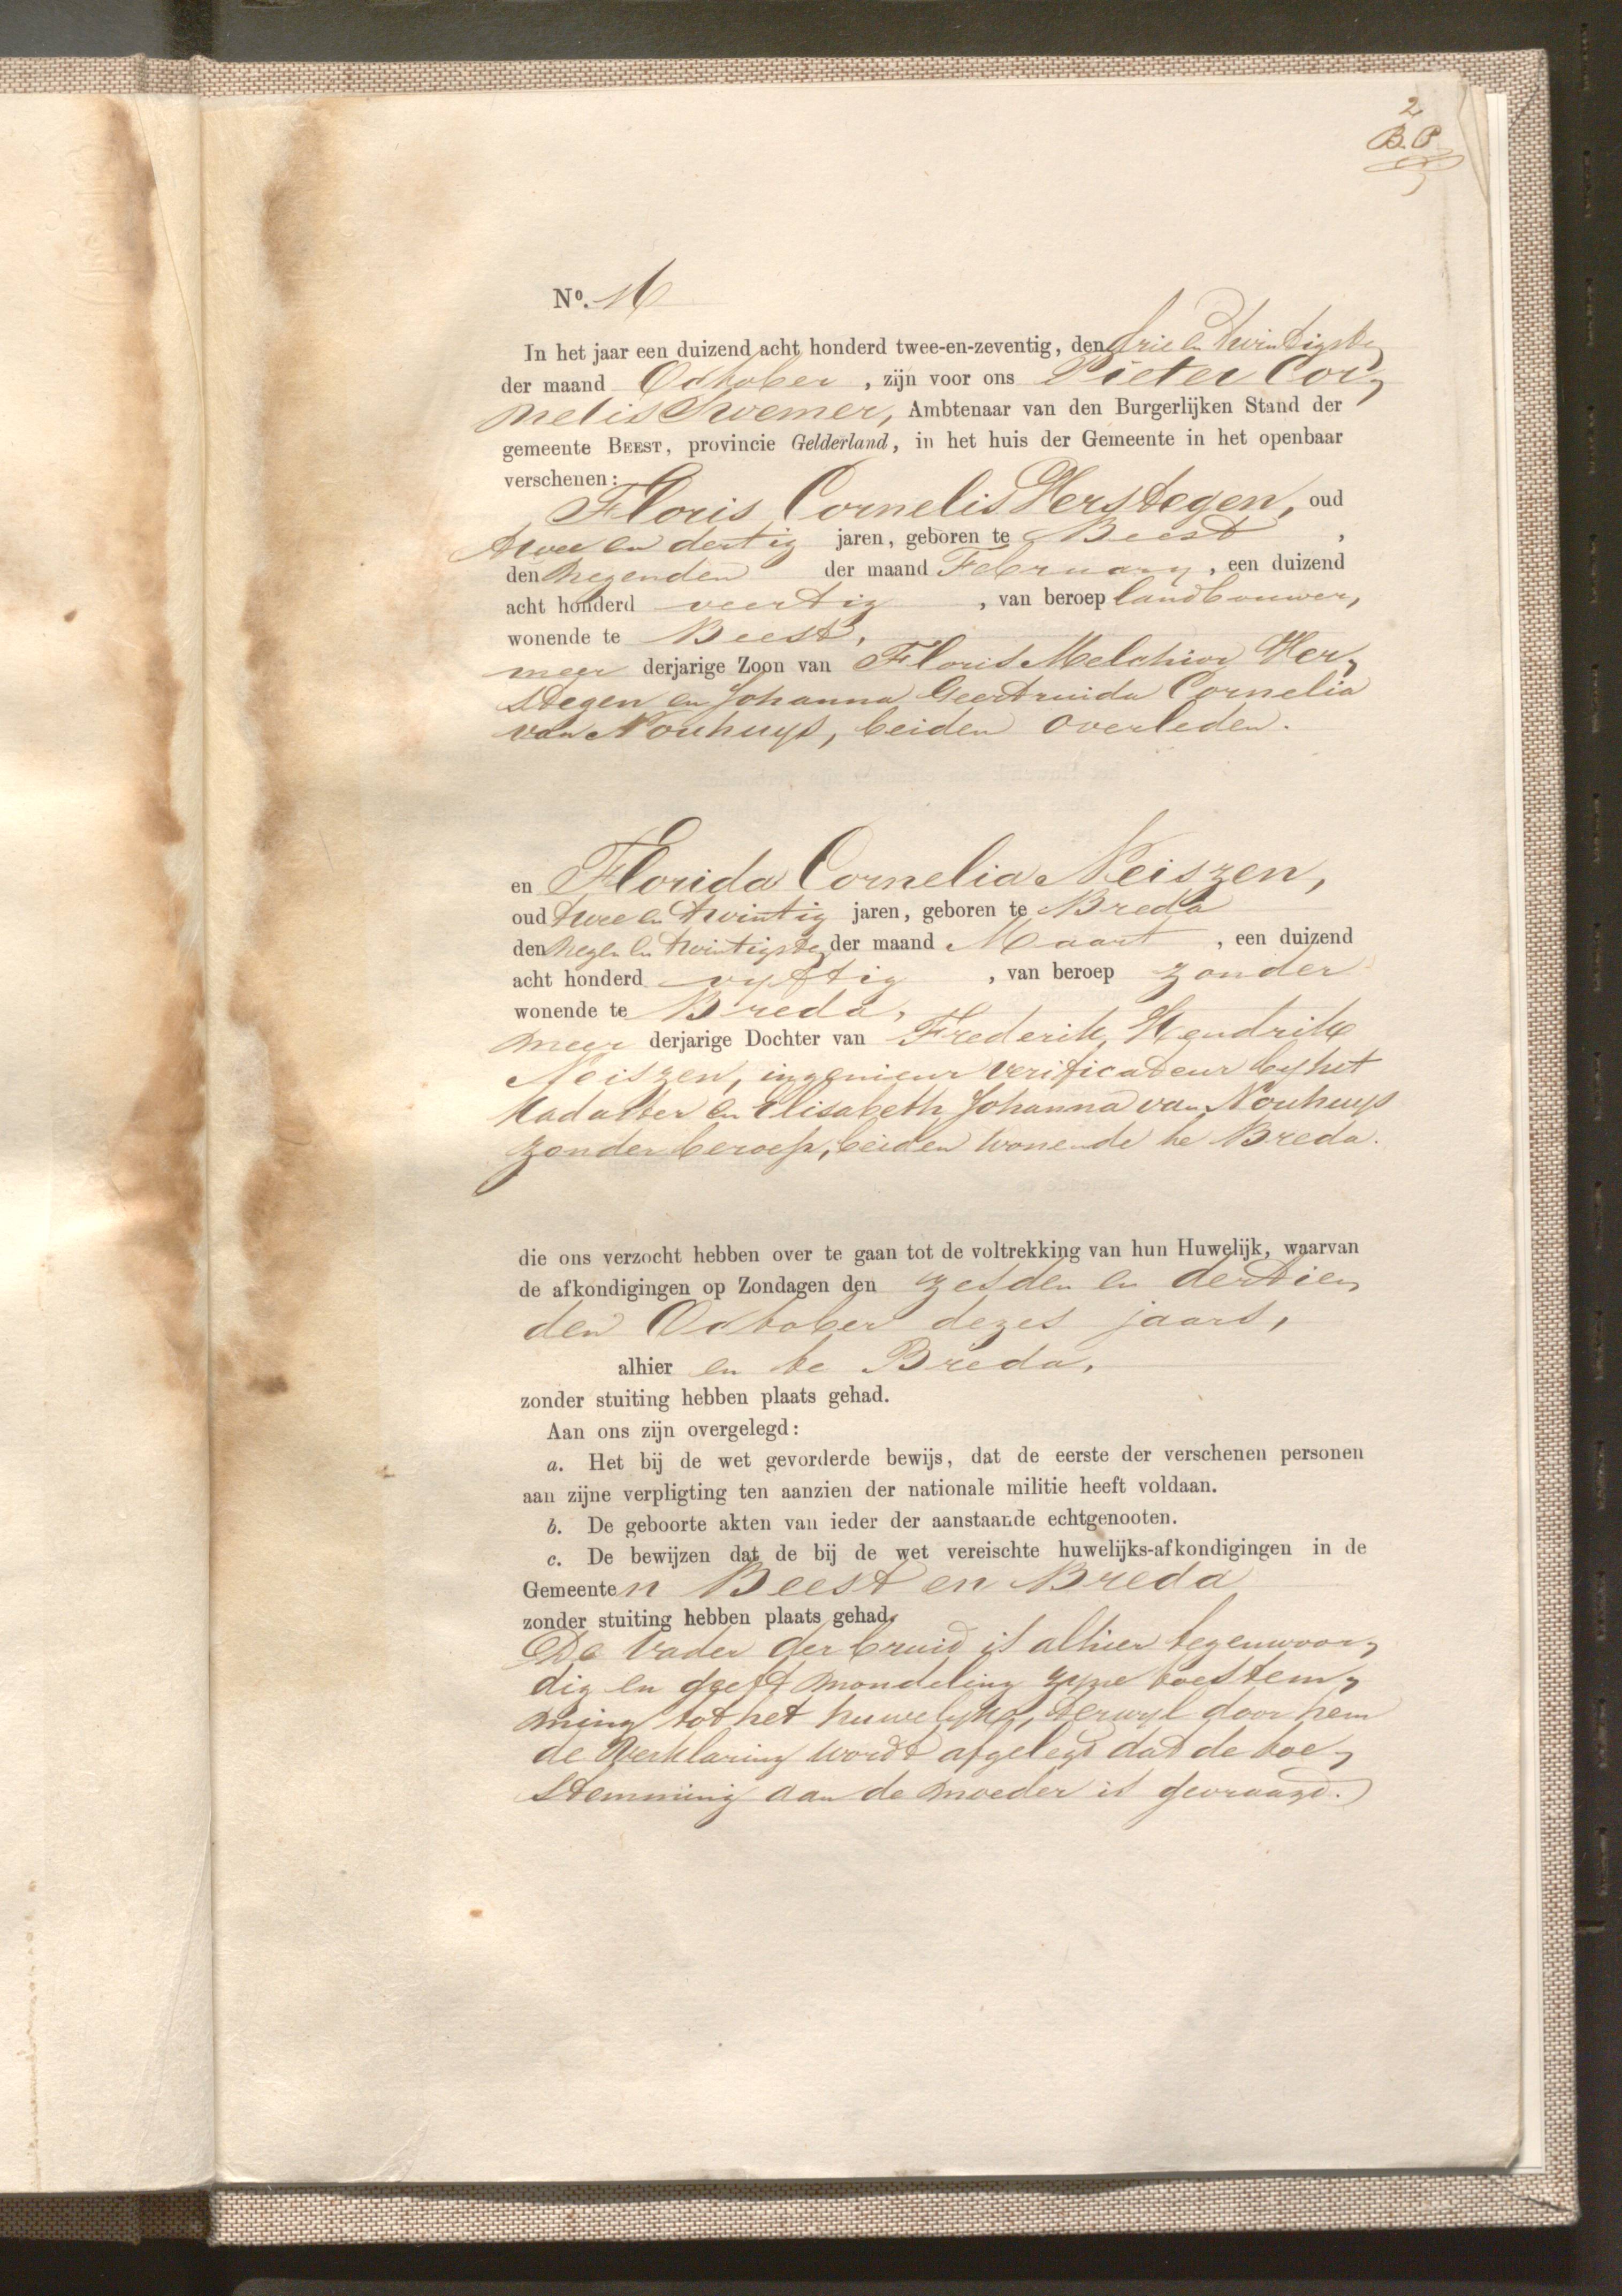 2
B.P.
No. 16
In het jaar een duizend acht honderd twee-en-zeventig, den drie en twintigste
der maand October, zijn voor ons Pieter Cor,
nelis Swemer, Ambtenaar van den Burgerlijken Stand der
gemeente BEEST, provincie Gelderland, in het huis der Gemeente in het openbaar
verschenen:
Floris Cornelis Verstegen, oud
twee en dertig jaren, geboren te Beest,
den negenden der maand February, een duizend
acht honderd veertig, van beroep landbouwer,
wonende te Beest,
meer derjarige Zoon van Floris Melchior Ver,
stegen en Johanna Geertruida Cornelia
van Nouhuys, beiden overleden.
en Florida Cornelia Neiszen,
oud twee en twintig jaren, geboren te Breda
den negen en twintigste der maand Maart, een duizend
acht honderd vyftig, van beroep zonder
wonende te Breda,
meer derjarige Dochter van Frederik Hendrik
Neiszen, ingenieur verificateur by het
Kadaster en Elisabeth Johanna van Nouhuys
zonder beroep, beiden wonende te Breda.
die ons verzocht hebben over te gaan tot de voltrekking van hun Huwelijk, waarvan
de afkondigingen op Zondagen den zesden en dertien,
den October dezes jaars,
alhier en te Breda,
zonder stuiting hebben plaats gehad.
Aan ons zijn overgelegd:
a. Het bij de wet gevorderde bewijs, dat de eerste der verschenen personen
aan zijne verpligting ten aanzien der nationale militie heeft voldaan.
b. De geboorte akten van ieder der aanstaande echtgenooten.
c. De bewijzen dat de bij de wet vereischte huwelijks-afkondigingen in de
Gemeenten Beest en Breda
zonder stuiting hebben plaats gehad,
De Vader der bruid is alhier tegenwoor,
dig en geeft mondeling zyne toestem,
ming tot het huwelyk, terwyl door hem
de verklaring wordt afgelegd dat de toe,
stemming aan de moeder is gevraagd.